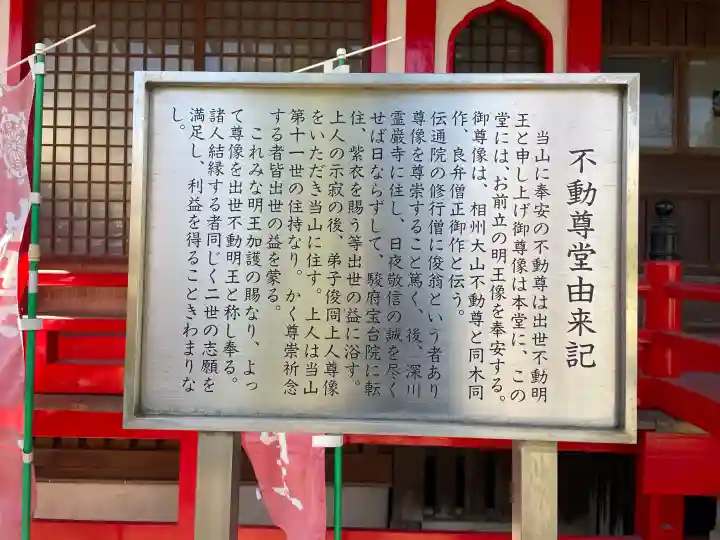 不動尊堂由来記
当山に奉安の不動尊は出世不動明
王と申し上げ御尊像は本堂に、この
堂には、お前立の明王像を奉安する。
御尊像は、相州大山不動尊と同木同
作、良弁僧正御作と伝う。
伝通院の修行僧に俊翁という者あり
尊像を尊崇すること篤く、後、深川
霊巌寺に住し、日夜敬信の誠を尽く
せば日ならずして、駿府宝台院に転
住、紫衣を賜う等出世の益に浴す。
上人の示寂の後、弟子俊冏上人尊像
をいただき当山に住す。上人は当山
第十一世の住持なり。かく尊崇祈念
する者皆出世の益を蒙る。
これみな明王加護の賜なり、よっ
て尊像を出世不動明王と称し奉る。
諸人結縁する者同じく二世の志願を
満足し、利益を得ることきわまりな
し。